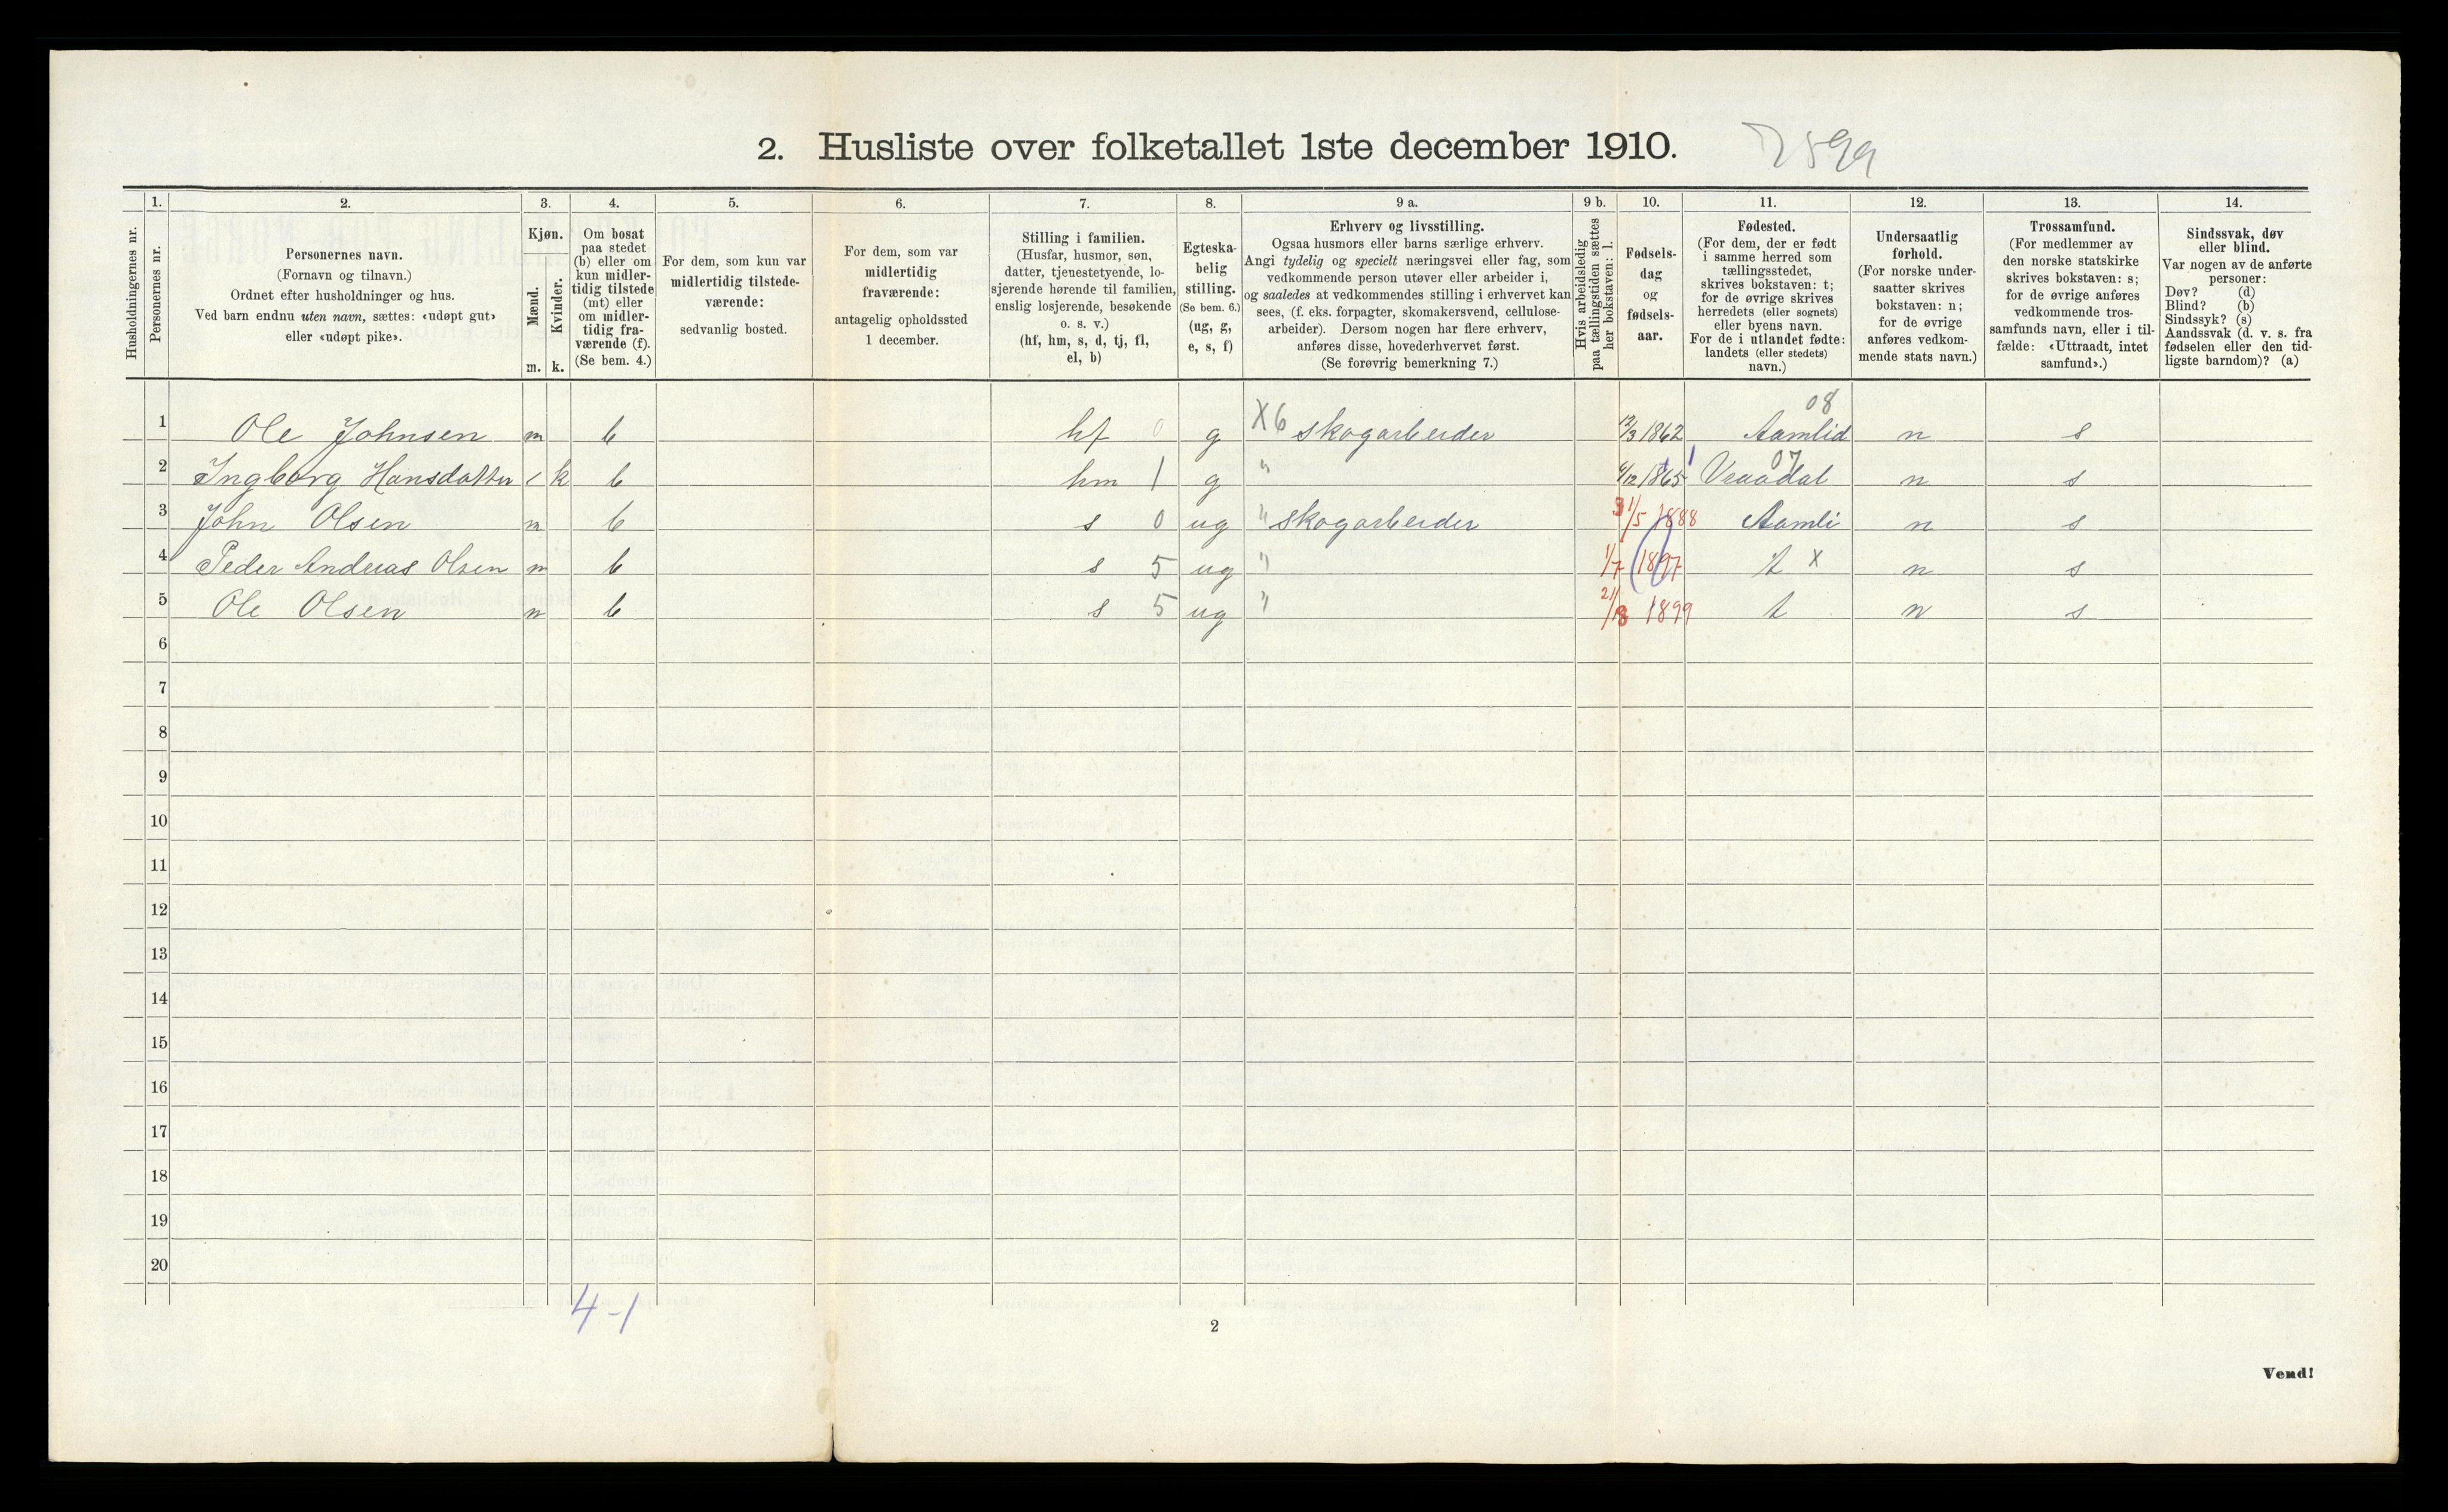 2. Husliste over folketallet 1ste december 1910.
Husholdningernes nr.
1. Personernes nr.
2. Personernes navn.
(Fornavn og tilnavn.)
Ordnet efter husholdninger og hus.
Ved barn endnu uten navn, sættes: «udøpt gut»
eller «udøpt pike».
3. Kjøn.
Mænd. Kvinder.
m. k.
4. Om bosat
paa stedet
(b) eller om
kun midler-
tidig tilstede
(mt) eller
om midler-
tidig fra-
værende (f).
(Se bem. 4.)
5. For dem, som kun var
midlertidig tilstede-
værende:
sedvanlig bosted.
6. For dem, som var
midlertidig
fraværende:
antagelig opholdssted
1 december.
7. Stilling i familien.
(Husfar, husmor, søn,
datter, tjenestetyende, lo-
sjerende hørende til familien,
enslig losjerende, besøkende
o. s. v.)
(hf, hm, s, d, tj, fl,
el, b)
8. Egteska-
belig
stilling.
(Se bem. 6.)
(ug, g,
e, s, f)
9 a. Erhverv og livsstilling.
Ogsaa husmors eller barns særlige erhverv.
Angi tydelig og specielt næringsvei eller fag, som
vedkommende person utøver eller arbeider i,
og saaledes at vedkommendes stilling i erhvervet kan
sees, (f. eks. forpagter, skomakersvend, cellulose-
arbeider). Dersom nogen har flere erhverv,
anføres disse, hovederhvervet først.
(Se forøvrig bemerkning 7.)
9 b. Hvis arbeidsledig
paa tællingstiden sættes
her bokstaven: l.
10. Fødsels-
dag
og
fødsels-
aar.
11. Fødested.
(For dem, der er født
i samme herred som
tællingsstedet,
skrives bokstaven: t;
for de øvrige skrives
herredets (eller sognets)
eller byens navn.
For de i utlandet fødte:
landets (eller stedets)
navn.)
12. Undersaatlig
forhold.
(For norske under-
saatter skrives
bokstaven: n;
for de øvrige
anføres vedkom-
mende stats navn.)
13. Trossamfund.
(For medlemmer av
den norske statskirke
skrives bokstaven: s;
for de øvrige anføres
vedkommende tros-
samfunds navn, eller i til-
fælde: «Uttraadt, intet
samfund».)
14. Sindssvak, døv
eller blind.
Var nogen av de anførte
personer:
Døv? (d)
Blind? (b)
Sindssyk? (s)
Aandssvak (d. v. s. fra
fødselen eller den tid-
ligste barndom)? (a)
08
1 Ole Johnsen m b hf 0 g X6 skogarbeider 12/3 1862 Aamlid n s
07
2 Ingborg Hansdatter k b hm 1 g " /12 1865 Vraadal n s
3 John Olsen m b s 0 ug " skogarbeider 31/5 1888 Aamli n s
4 Peder Andreas Olsen m b s 5 ug " 1/7 1897 t x n s
5 Ole Olsen m b s 5 ug " 1899 t n s
6
7
8
9
10
11
12
13
14
15
16
17
18
19
20
4-1
2
Vend!